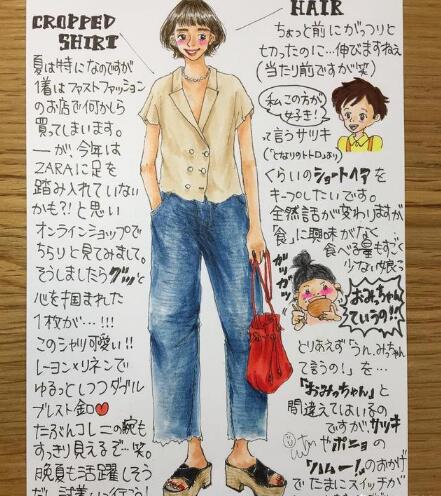 CROPPED
SHIRT
夏は特になのですが
1着はファストファッション
のお店で何かしら
買ってしまいます。
が、今年は
ZARAに足を
踏み入れていない
かも?!と思い
オンラインショップで
ちらりと見てみまして。
そうしましたらグッと
心を掴まれた
1枚が…!!!
このシャツ可愛い!!
レーヨン×リネンで
ゆるっとしつつダブル
ブレスト釦
たぶんコレこの腕も
すっきり見えるぞ…笑。
晩夏も活躍しそう
HAIR
ちょっと前にがっつりと
切ったのに…伸びますねぇ
(当たり前ですが笑)
私この方が
好き!
って言うサツキ
(「となりのトトロ」より)
くらいのショートヘアを
キープしたいです。
全然話が変わりますが
「食」に興味がなく
食べる量もすごく
少ない娘っ
ガツガツ
おみちゃん
ていうの!!
とりあえず「うん、みちゃん
て言うの!」を…
「おみっちゃん」と
間違えてはいるの
ですが、サツキ
やポニョの
「ハムー!」のおかげ
でたまにスイッチが